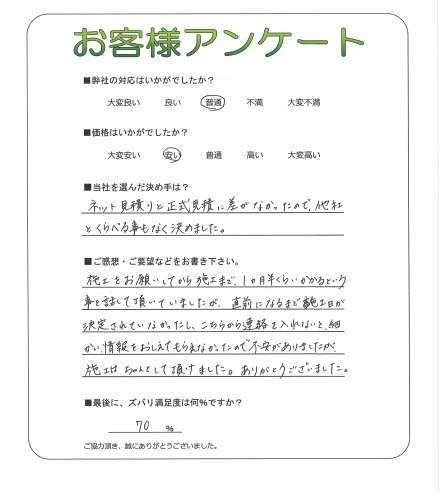 お客様アンケート
■弊社の対応はいかがでしたか？
大変良い　良い　普通　不満　大変不満
■価格はいかがでしたか？
大変安い　安い　普通　高い　大変高い
■当社を選んだ決め手は？
ネット見積りと正式見積に差がなかったので、他社
とくらべる事もなく決めました。
■ご感想・ご要望などをお書き下さい。
施工をお願いしてから施工まで、1ヵ月半くらいかかるという
事を話して頂いていましたが、直前になるまで施工日が
決定されていなかったし、こちらから連絡を入れないと、細
かい情報をおしえてもらえなかったので不安がありましたが、
施工はちゃんとして頂けました。ありがとうございました。
■最後に、ズバリ満足度は何%ですか？
70 %
ご協力頂き、誠にありがとうございました。